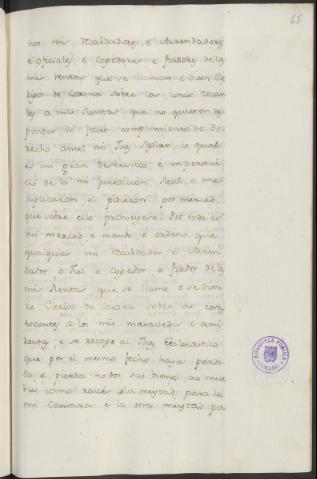 68
nos mis Recabdadores, é Arrendadores
é oficiales, é Cogedores é fiadores de las
mis rentas que se llaman é dicen Cle
rigos de Corona sobre las cosas tocan
tes a mis Rentas que no quieren res
ponder ni facer complimiento de de
recho ante mi Juez seglar, lo qual
es mi gran deservicio é en perjui
cio de la mi Juredicion Real, é me
suplicaron é pidieron por merced,
que sobre ello proveyese: Por ende es
mi merced é mando é ordeno que
qualquier mi Recabdador é Arren
dador o Fiel o Cogedor o fiador de las
mis Rentas que se llame o se dixere
de Clerigo de Corona sobre las cosas
tocantes a los mis maravedis é a mis
rentas é se recoge al Juez Eclesiastico
que por el mismo fecho haya perdi
do é pierda todos sus bienes asi mue
bles como raices, la meytad para la
mi Camara é la otra meytad pa
BIBLIOTECA PUBLICA